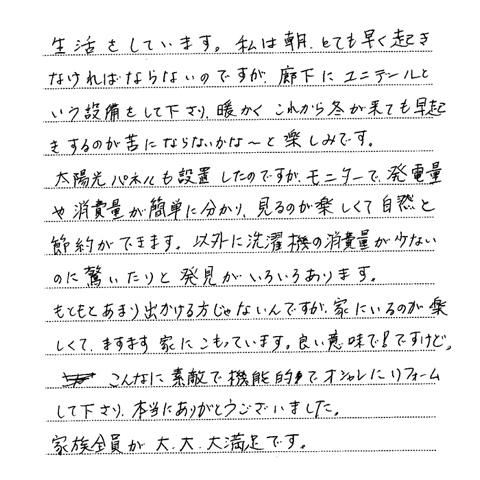 生活をしています。私は朝、とても早く起き
なければならないのですが、廊下にユニデールと
いう設備をして下さり、暖かく これから冬が来ても早起
きするのが苦にならないかな〜と楽しみです。
太陽光パネルも設置したのですが、モニターで、発電量
や消費量が簡単に分かり、見るのが楽しくて自然と
節約ができます。以外に洗濯機の消費量が少ない
のに驚いたりと発見がいろいろあります。
もともとあまり出かける方じゃないんですが、家にいるのが楽
しくて、ますます家にこもっています。良い意味で!ですけど。
こんなに素敵で機能的でオシャレにリフォーム
して下さり、本当にありがとうございました。
家族全員が 大、大、大満足です。